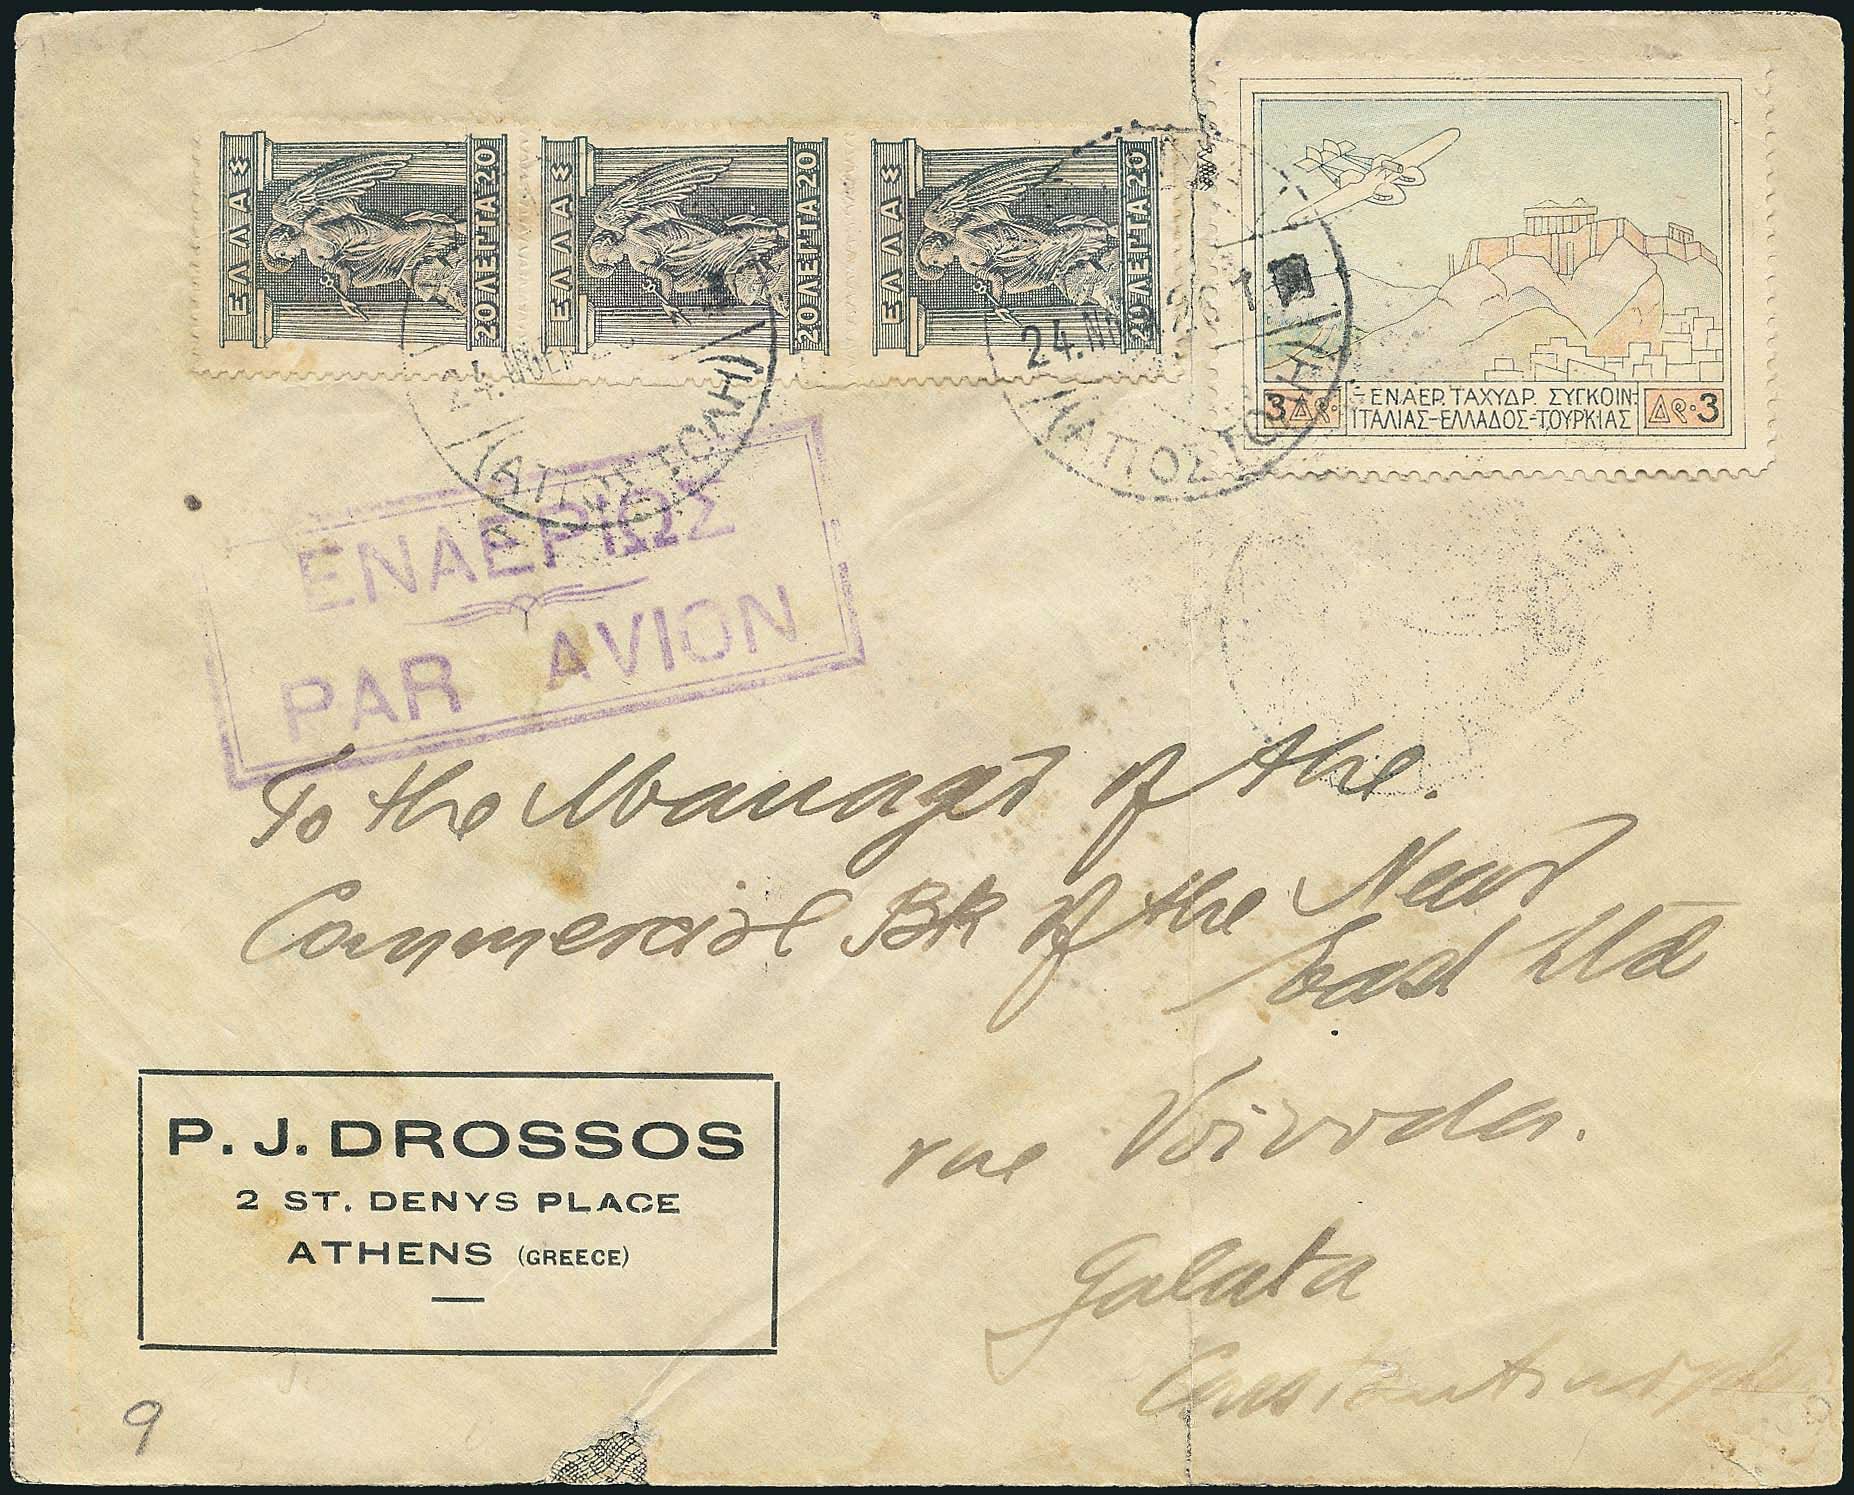 ΕΛΛΑΣ
20 ΛΕΠΤΑ 20
ΕΛΛΑΣ
20 ΛΕΠΤΑ 20
ΕΛΛΑΣ
20 ΛΕΠΤΑ 20
3 ΔΡ.
-ΕΝΑΕΡ. ΤΑΧΥΔΡ. ΣΥΓΚΟΙΝ:
ΙΤΑΛΙΑΣ-ΕΛΛΑΔΟΣ-ΤΟΥΡΚΙΑΣ
ΔΡ. 3
(ΑΠΟΣΤΟΛΗ)
24.
(ΑΠΟΣΤΟΛΗ)
ΕΝΑΕΡΙΩΣ
PAR AVION
To the Manager of the
Commercial Bk of the Near
East Ltd
rue Voivoda.
Galata
Constantinople
P. J. DROSSOS
2 ST. DENYS PLACE
ATHENS (GREECE)
9